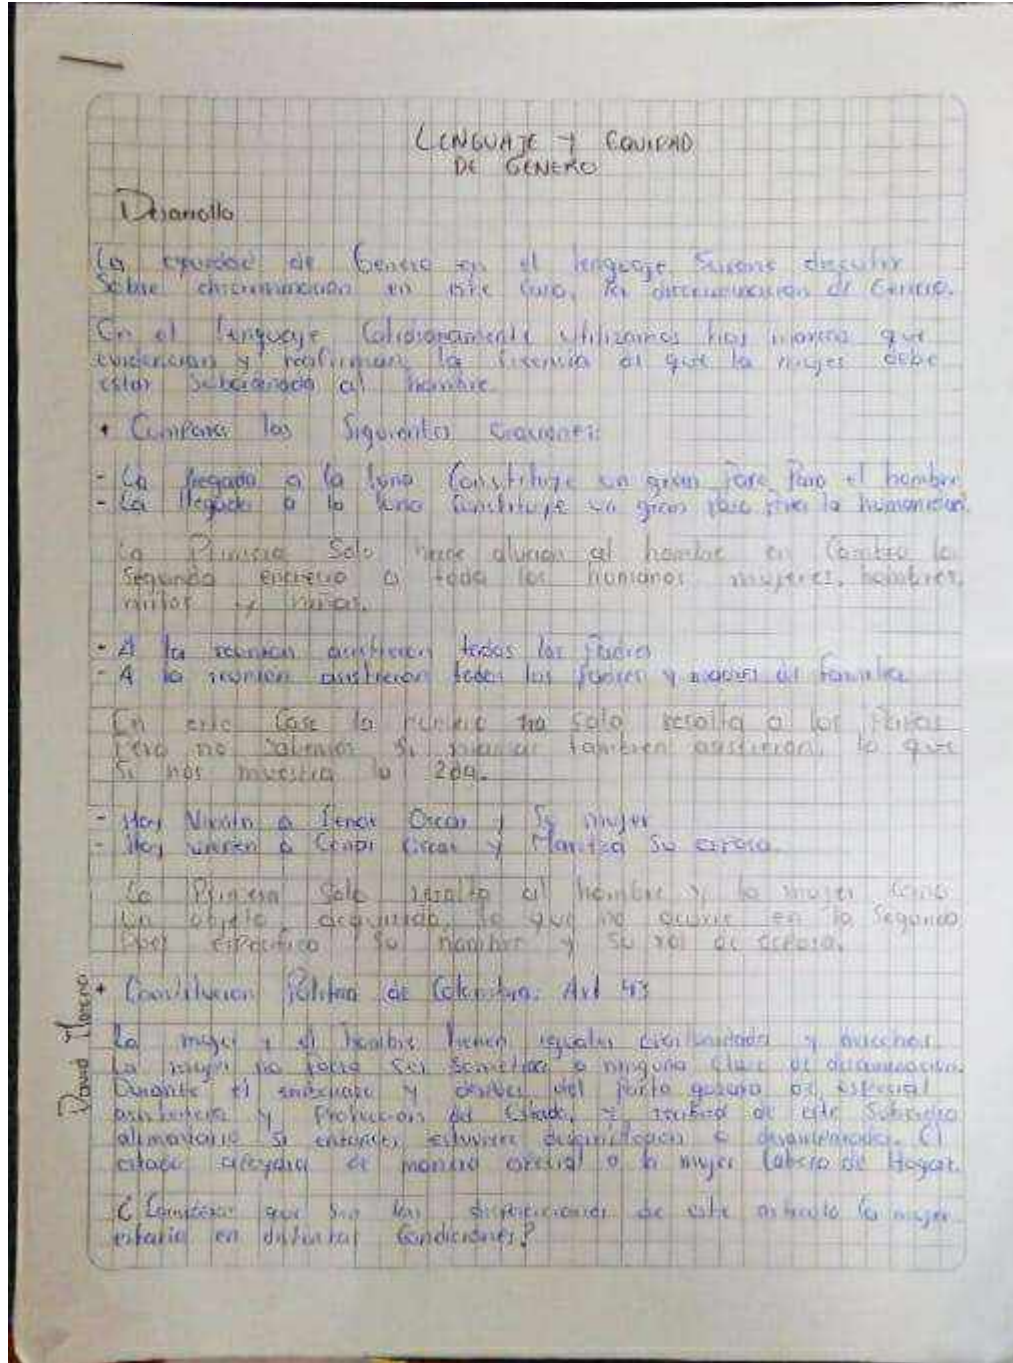 LENGUAJE Y EQUIDAD
DE GENERO
Desarrollo
La equidad de Genero en el lenguaje, Supone discutir
Sobre discriminacion en este Caso, la discriminacion de Genero.
En el lenguaje Cotidianamente utilizamos hay marcas que
evidencian y reafirman la de que la mujer debe
estar Subordinada al hombre.
• Compara las Siguientes Oraciones:
- La llegada a la luna Constituye un gran Paso Para el hombre
- La llegada a la luna Constituye un gran paso para la humanidad.
La Primera Solo hace alucion al hombre en Cambio la
Segunda a todos los humanos, mujeres, hombres,
niños y niñas.
- A la reunion asistieron todos los Padres
- A la reunion asistieron todos los Padres y madres de familia
En este Caso la Solo resalta a los Padres
Pero no sabemos Si tambien asistieron, lo que
Si nos muestra la 2da.
- Hoy Vienen a Cenar Oscar y Su mujer
- Hoy vienen a Cenar Oscar y Maritza Su esposa.
La Primera Solo resalta al hombre y la mujer Como
Un objeto adquirido, lo que no ocurre en la Segunda
Pues especifica Su nombre y Su rol de esposa.
• Constitucion Politica de Colombia: Art 43
La mujer y el hombre tienen iguales y
La mujer no Ser Sometida a ninguna Clase de discriminacion.
Durante el y del parto gozara de especial
asistencia y Proteccion del Estado, y de este Subsidio
alimentario Si entonces estuviere o desamparada. El
estado de manera especial a la mujer Cabeza de Hogar.
¿Consideras que Sin las disposiciones de este articulo la mujer
estaria en distintas Condiciones?
David Moreno